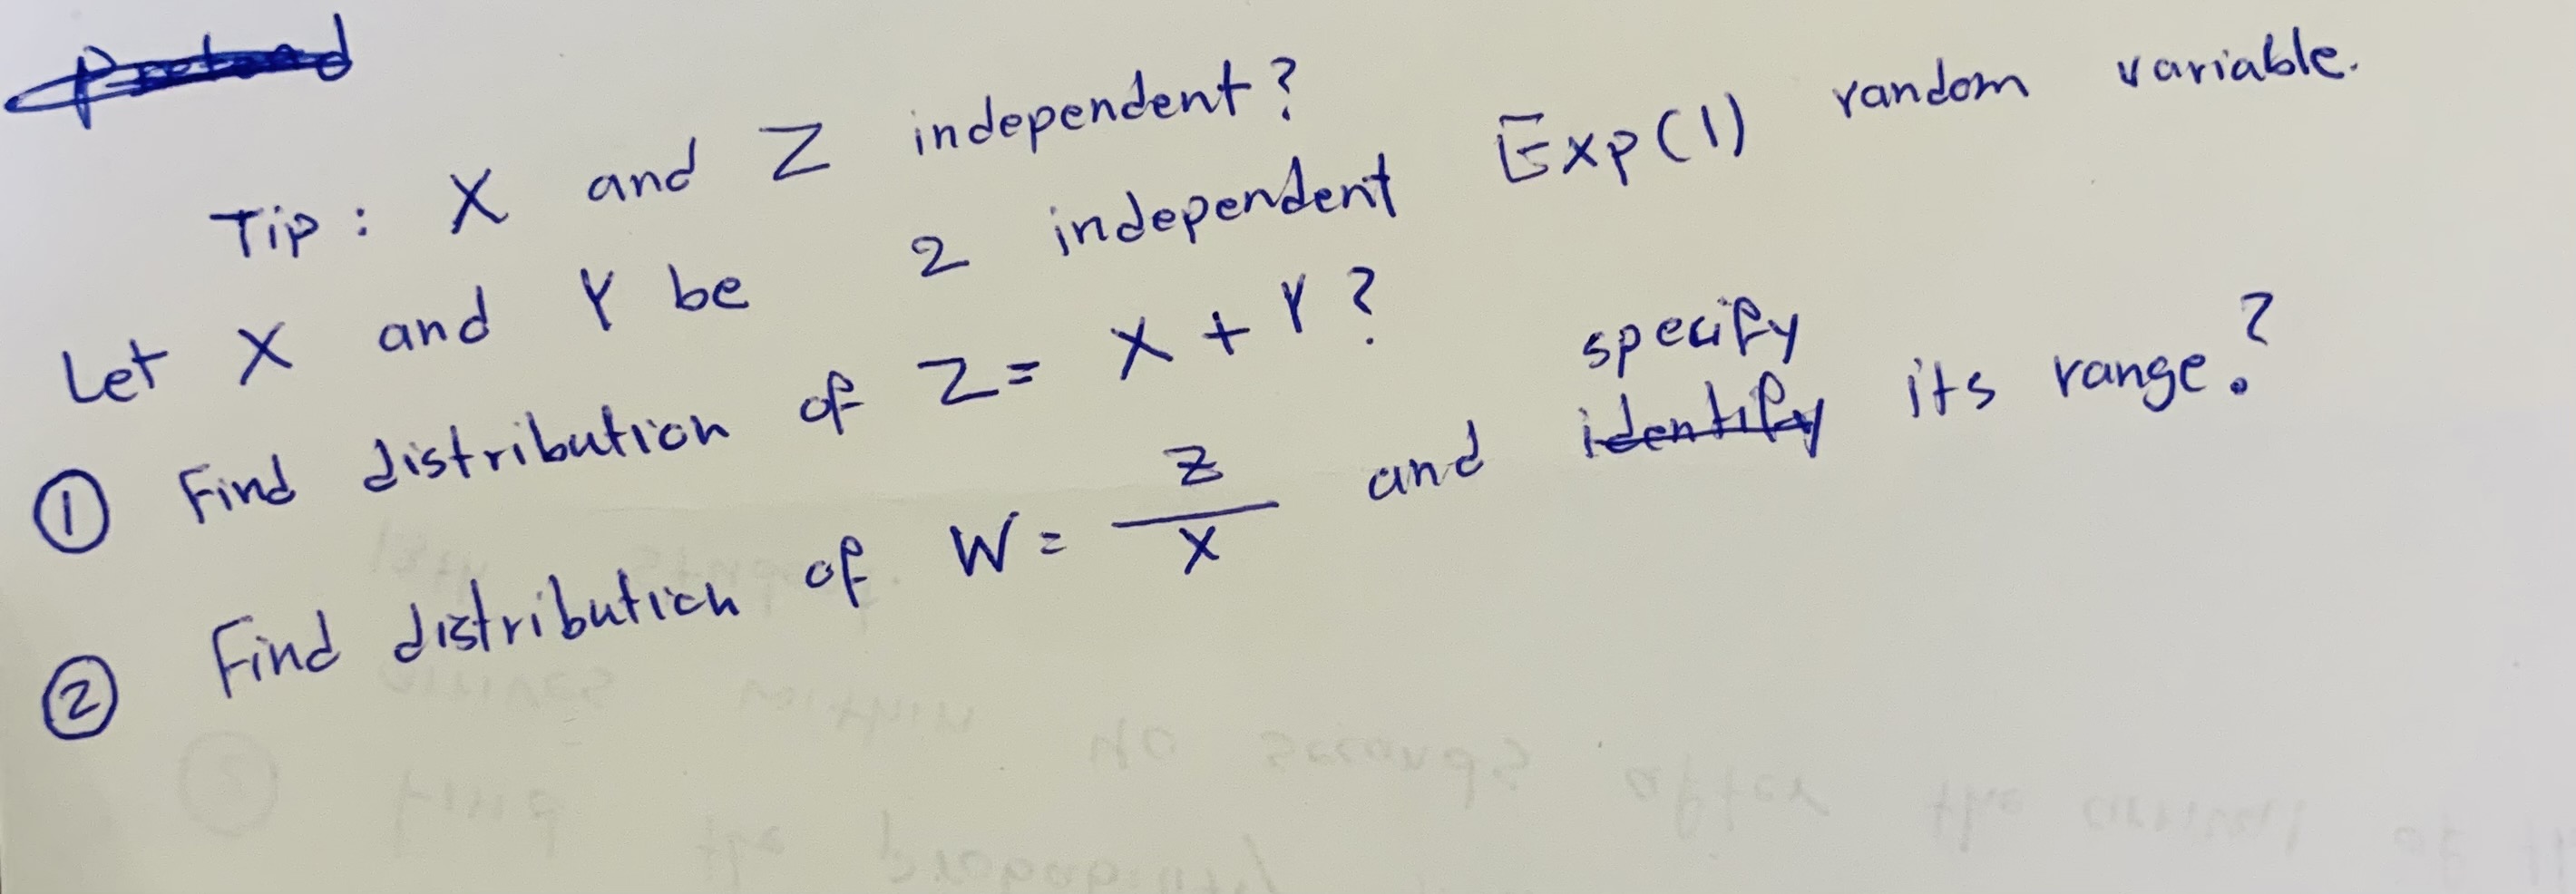 Tip: X and Z independent?
Let X and Y be 2 independent Exp(1) random variable.
① Find distribution of Z = X + Y?
② Find distribution of W = Z/X and specify its range?